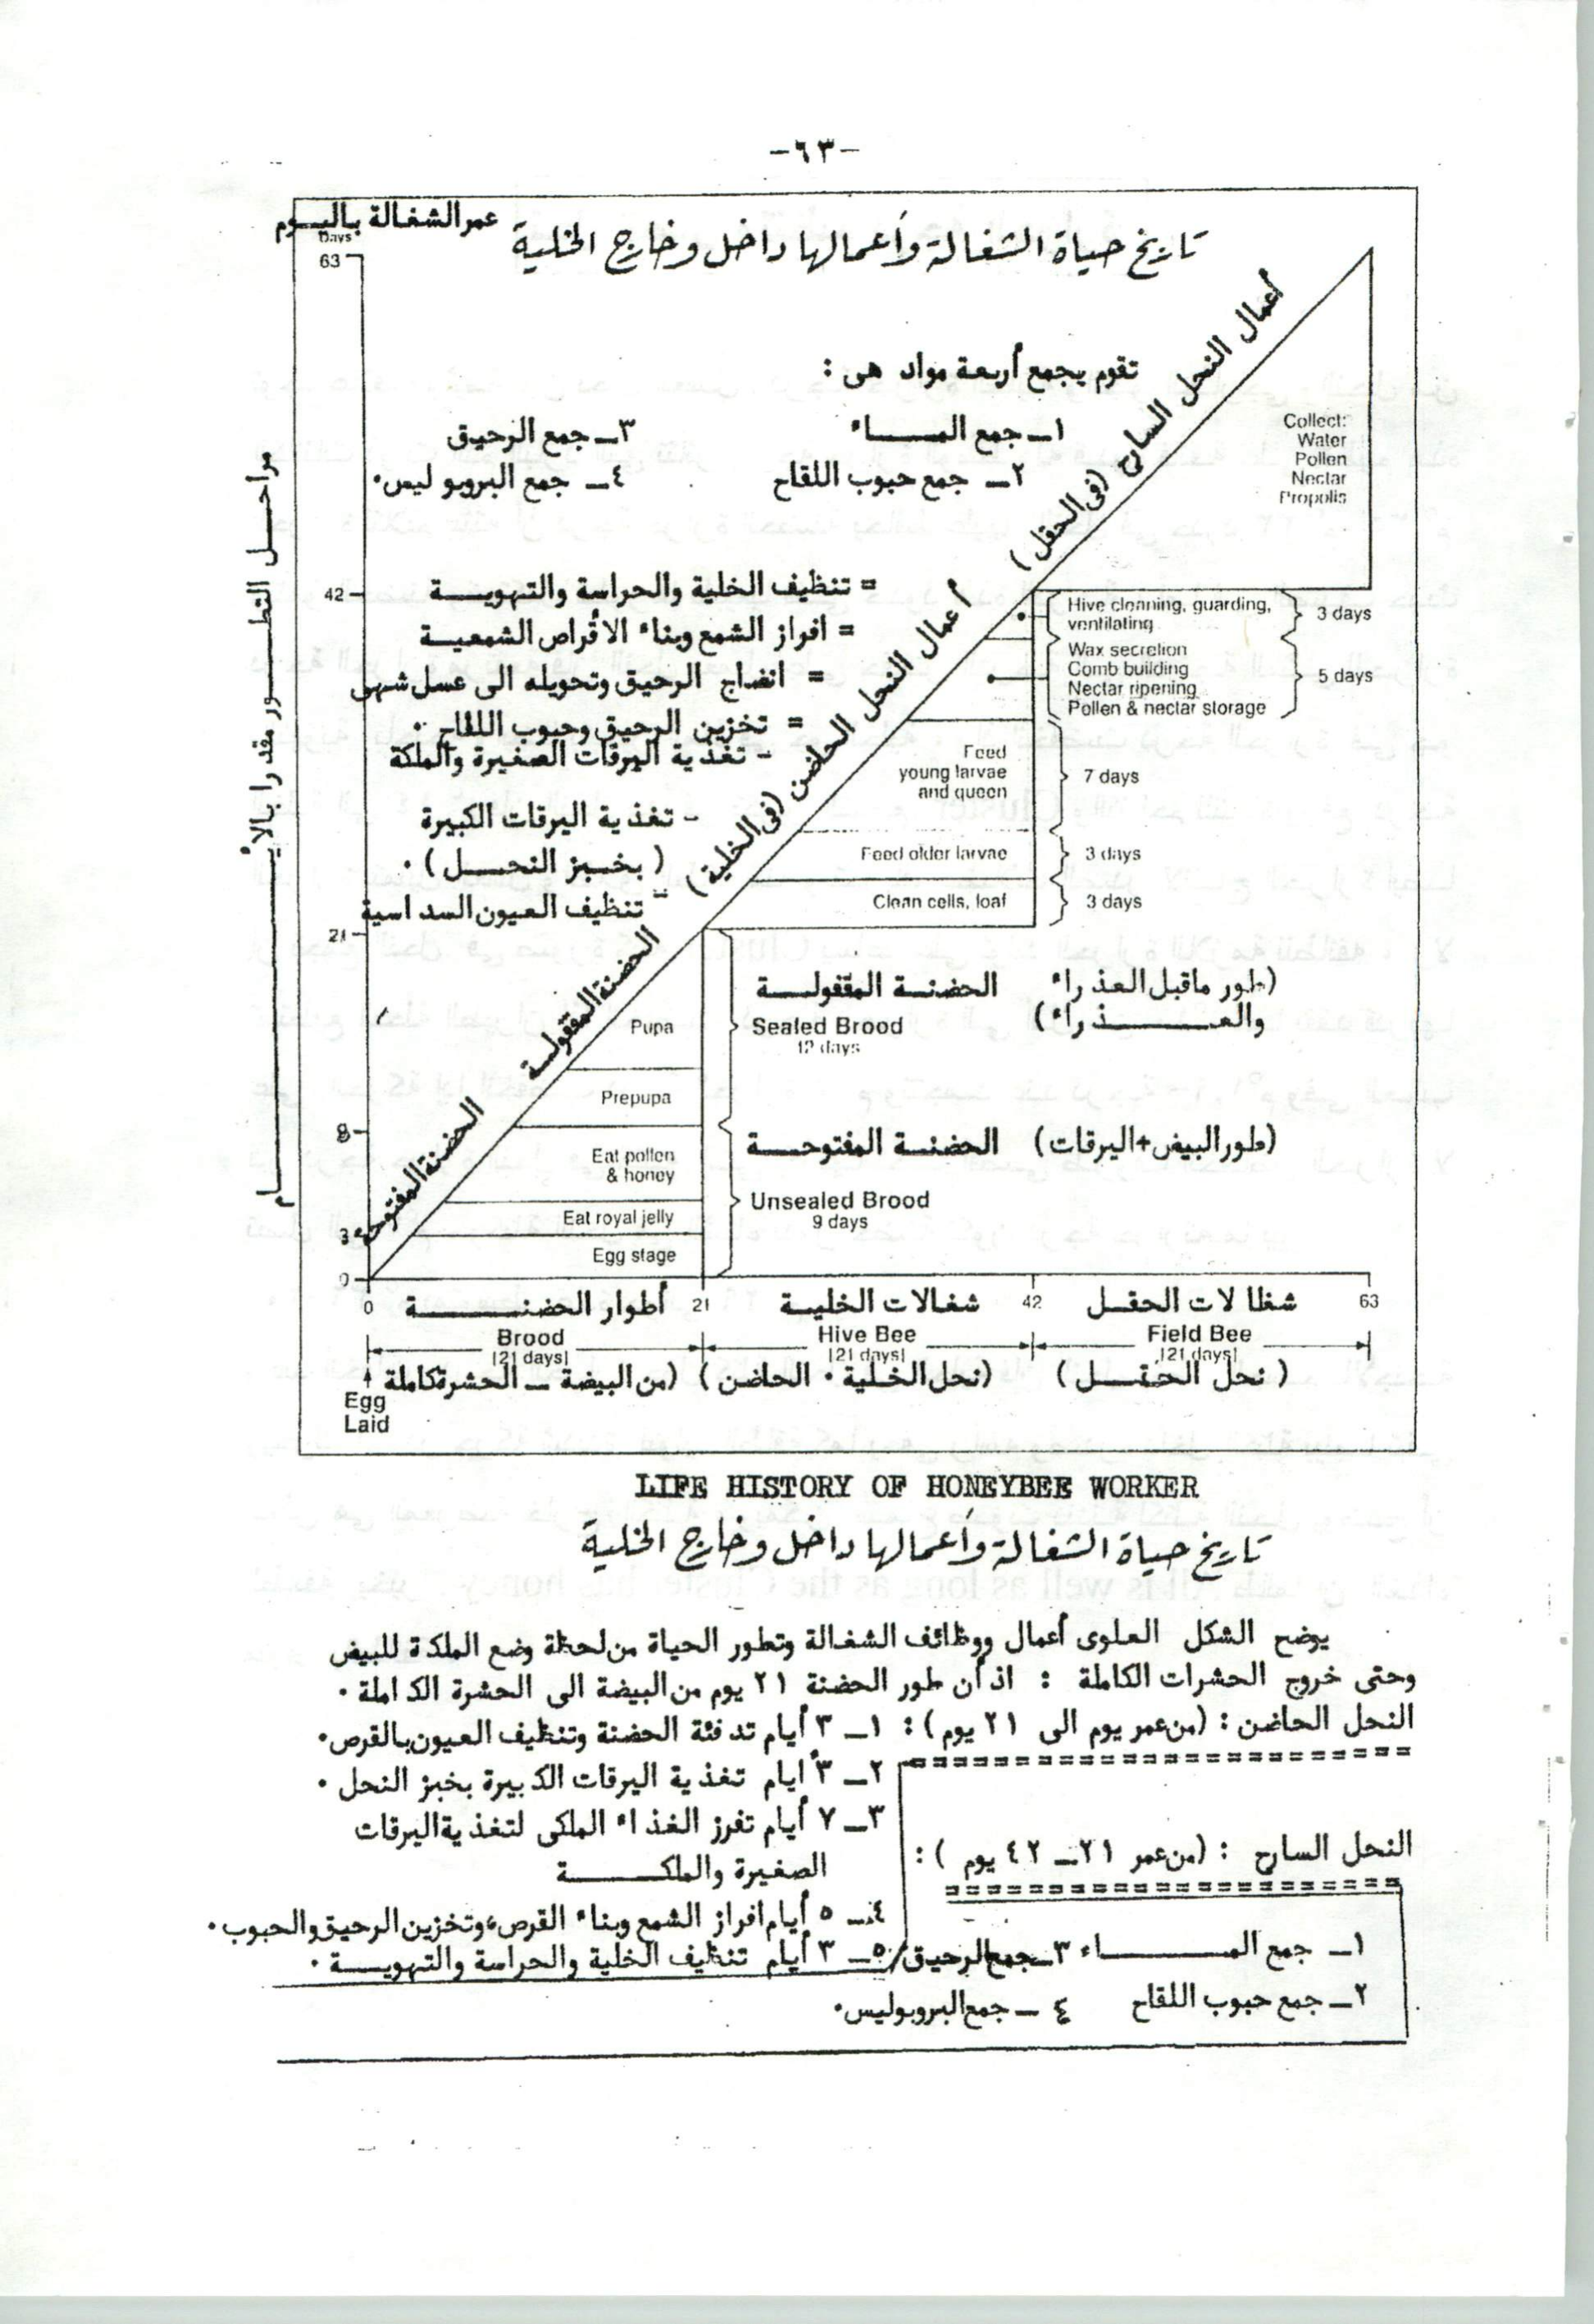 -٦٣-
عمر الشغالة باليوم
Days
تاريخ حياة الشغالة وأعمالها داخل وخارج الخلية
63
أعمال النحل السارح (فى الحقل)
تقوم بجمع أربعة مواد هى :
١ـ جمع المـــاء
٣ـ جمع الرحيق
٢ـ جمع حبوب اللقاح
٤ـ جمع البروبوليس٠
Collect:
Water
Pollen
Nectar
Propolis
مراحل التطور مقدرا بالأيام
42
أعمال النحل الحاضن (فى الخلية)
= تنظيف الخلية والحراسة والتهويــة
= افراز الشمع وبناء الاقراص الشمعيــة
= انضاج الرحيق وتحويله الى عسل شهى
= تخزين الرحيق وحبوب اللقاح ٠
- تغذية اليرقات الصغيرة والملكة
- تغذية اليرقات الكبيرة
(بخبز النحــل) ٠
= تنظيف العيون السداسية
Hive cleaning, guarding,
ventilating
3 days
Wax secretion
Comb building
Nectar ripening
Pollen & nectar storage
5 days
Feed
young larvae
and queen
7 days
Feed older larvae
3 days
Clean cells, loaf
3 days
21
الحضنة المقفولــة
الحضنــة المقفولــة
(طور ماقبل العذراء
والعـــذراء)
Pupa
Sealed Brood
12 days
Prepupa
الحضنة المفتوحة
الحضنــة المفتوحــة
(طور البيض+اليرقات)
Eat pollen
& honey
Unsealed Brood
9 days
Eat royal jelly
3
Egg stage
0
0
أطوار الحضنــة
21
شغالات الخليــة
42
شغالات الحقــل
63
Brood
[21 days]
Hive Bee
[21 days]
Field Bee
[21 days]
(من البيضة ــ الحشرة كاملة
(نحل الخلية ٠ الحاضن)
(نحل الحقــل)
Egg
Laid
LIFE HISTORY OF HONEYBEE WORKER
تاريخ حياة الشغالة وأعمالها داخل وخارج الخلية
يوضح الشكل العلوى أعمال ووظائف الشغالة وتطور الحياة من لحظة وضع الملكة للبيض
وحتى خروج الحشرات الكاملة : اذ أن طور الحضنة ٢١ يوم من البيضة الى الحشرة الكاملة ٠
النحل الحاضن : (من عمر يوم الى ٢١ يوم) : ١ـ ٣ أيام تدفئة الحضنة وتنظيف العيون بالقرص٠
٢ـ ٣ أيام تغذية اليرقات الكبيرة بخبز النحل ٠
٣ـ ٧ أيام تفرز الغذاء الملكى لتغذية اليرقات
الصغيرة والملكــة
٤ـ ٥ أيام افراز الشمع وبناء القرص، وتخزين الرحيق والحبوب ٠
٥ـ ٣ أيام تنظيف الخلية والحراسة والتهويــة ٠
النحل السارح : (من عمر ٢١ـ ٤٢ يوم) :
١ـ جمع المـــاء ٣ـ جمع الرحيق
٢ـ جمع حبوب اللقاح ٤ـ جمع البروبوليس٠